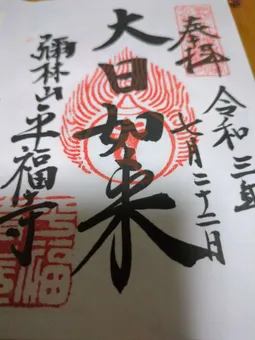 奉拝
令和三年
七月二十二日
大日如来
彌林山平福寺